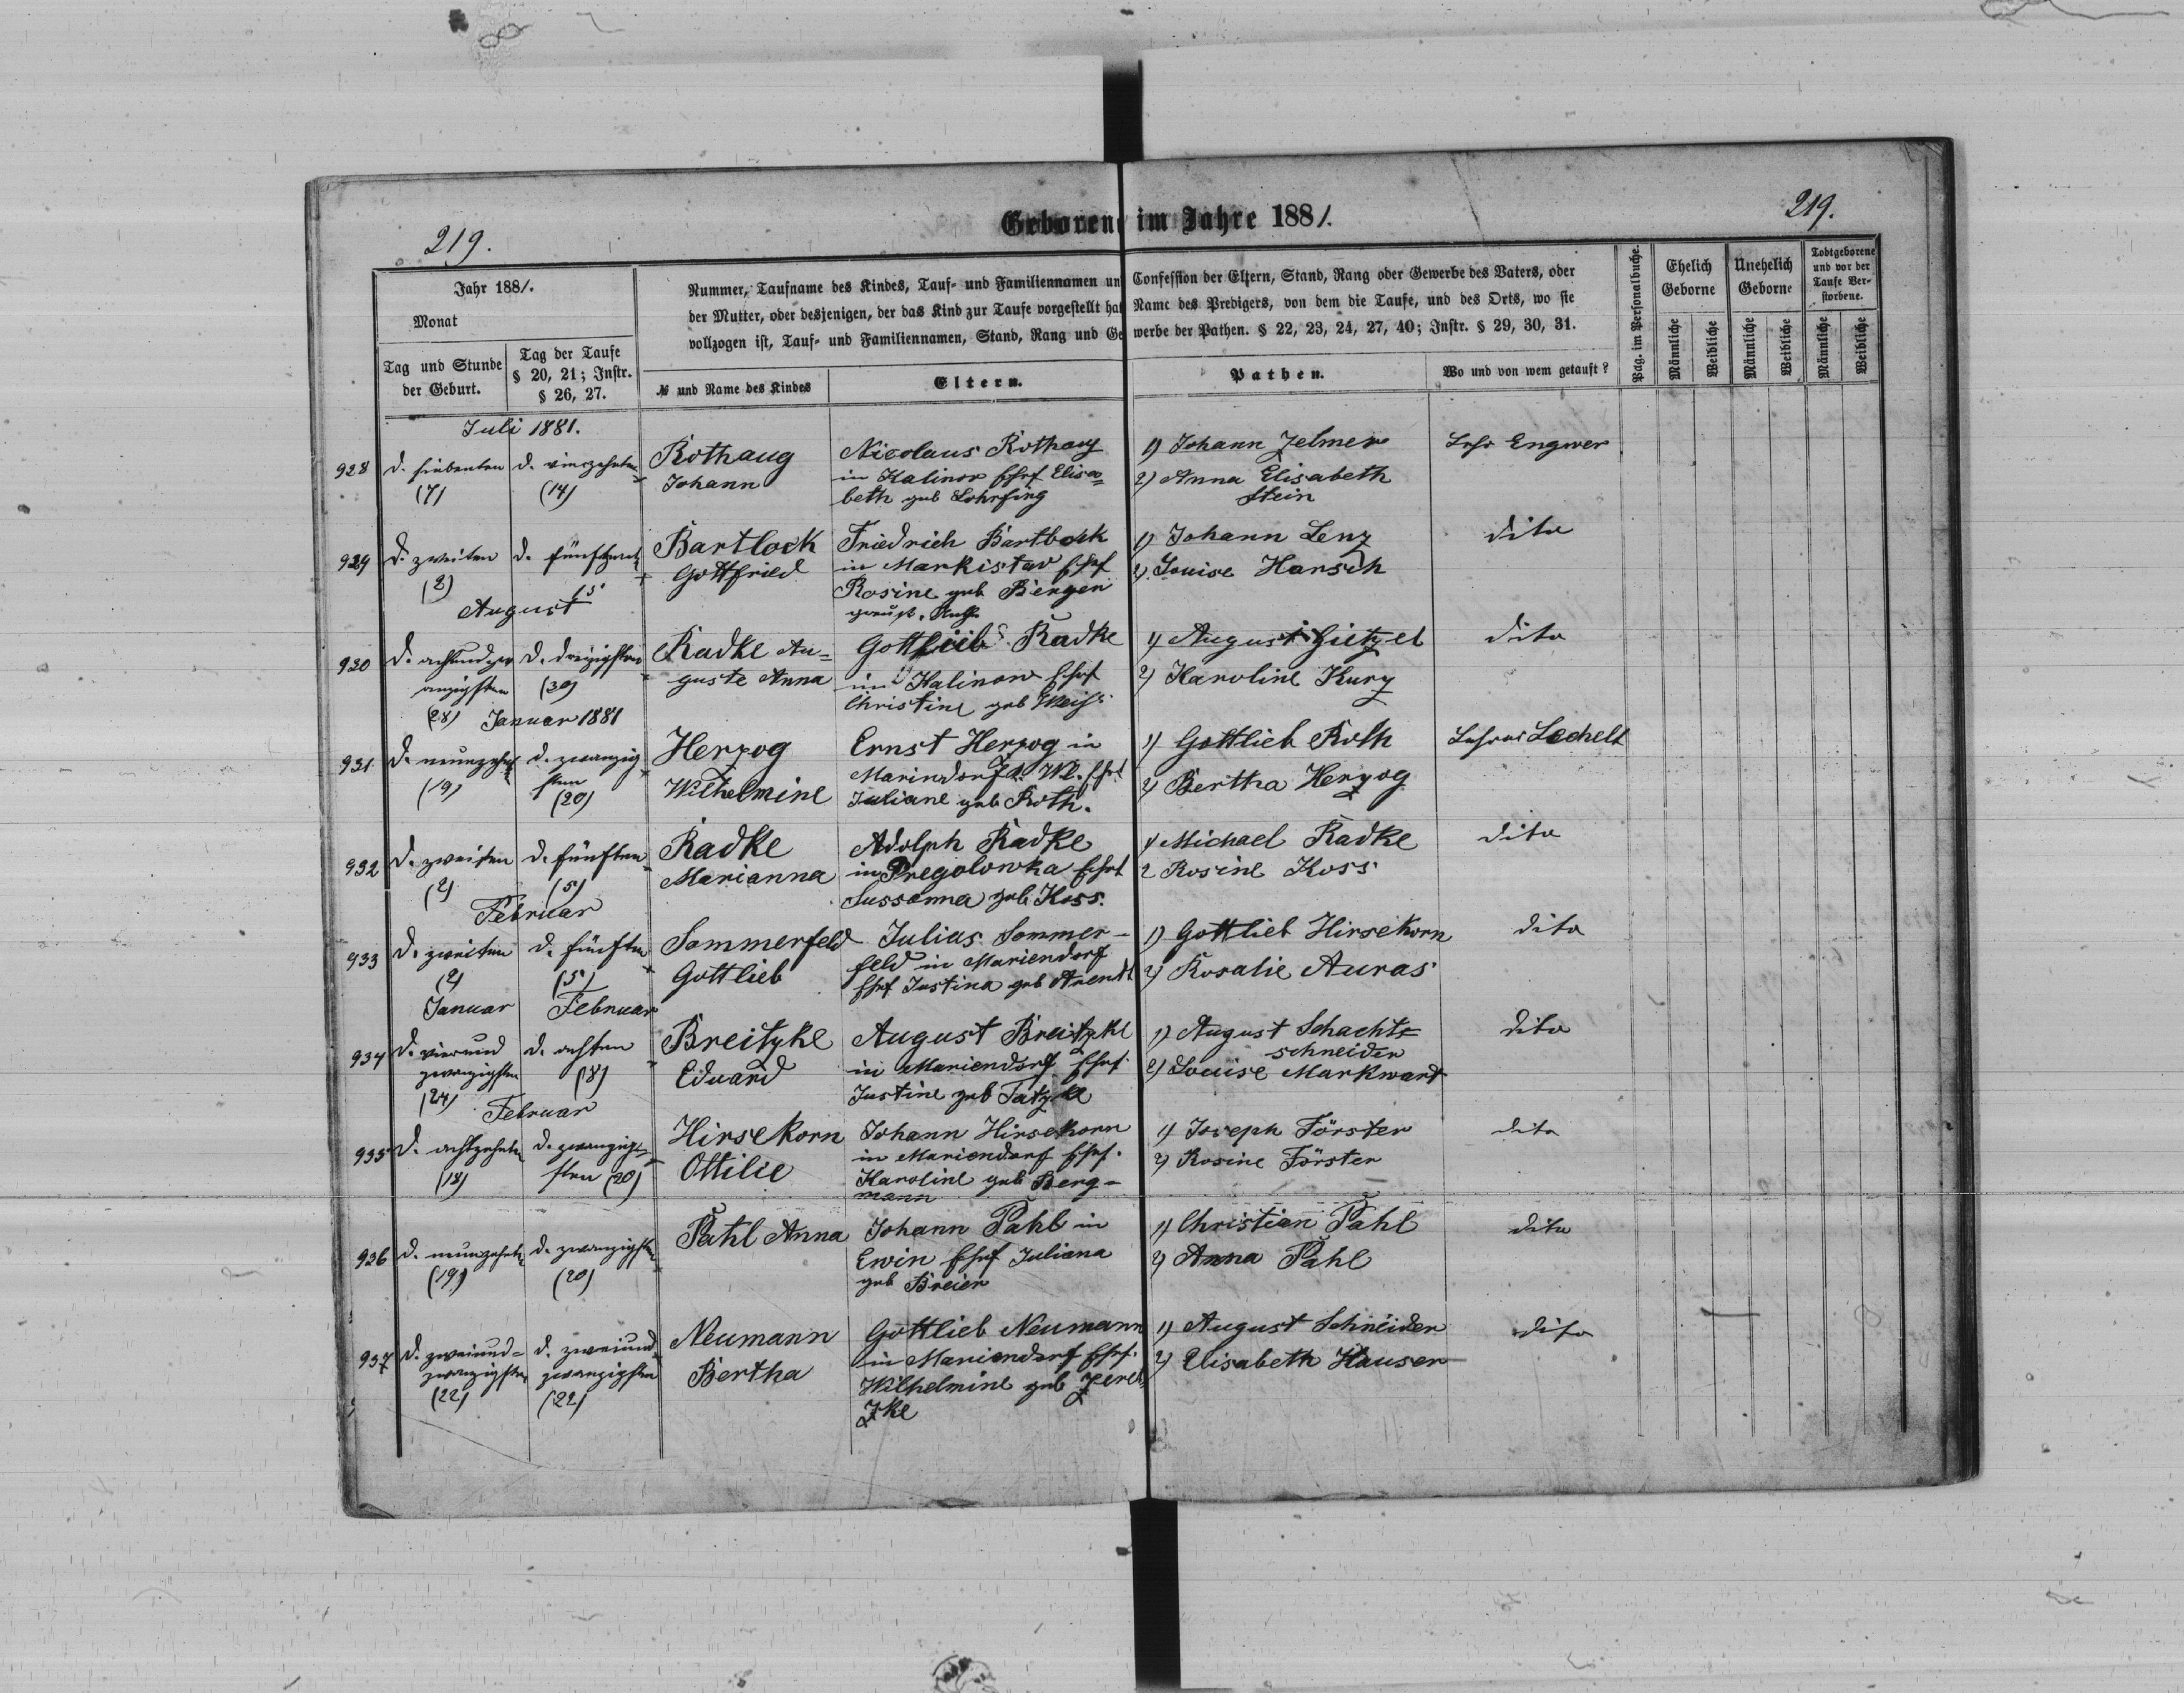 219.
Geborene im Jahre 1881.
219.
Jahr 1881.
Monat
Tag und Stunde
der Geburt.
Tag der Taufe
§ 20, 21; Instr.
§ 26, 27.
Nummer, Taufname des Kindes, Tauf- und Familiennamen un Confession der Eltern, Stand, Rang oder Gewerbe des Vaters, oder
der Mutter, oder desjenigen, der das Kind zur Taufe vorgestellt hat Name des Predigers, von dem die Taufe, und des Orts, wo sie
vollzogen ist, Tauf- und Familiennamen, Stand, Rang und Ge werbe der Pathen. § 22, 23, 24, 27, 40; Instr. § 29, 30, 31.
№ und Name des Kindes
Eltern.
Pathen.
Wo und von wem getauft?
Pag. im Personalbuche.
Ehelich
Geborne
Unehelich
Geborne
Todtgeborene
und vor der
Taufe Ver-
storbene.
Männliche
Weibliche
Männliche
Weibliche
Männliche
Weibliche
Juli 1881.
928
d. siebenten
(7)
d. vierzehnten
(14)
Rothaug
Johann
Nicolaus Rothaug
in Kalinow Ehef Elisa=
beth geb Lohrfing
1) Johann Zelmer
2) Anna Elisabeth
Stein
Engwer
929
d. zweiten
(2)
d. fünfzent
15
Bartlock
Gottfried
Friedrich Bartlock
in Markistav Ehef
Rosine geb Bergen
1) Johann Lenz
2) Louise Harsch
dito
August
930
d. achtundzw
anzigsten
(28)
d. dreizigsten
(30)
Radke Au=
guste Anna
Gottlieb Radke
in Kalinow Ehef
Christine geb Weiß
1) August Gietzel
2) Karoline Kurz
dito
Januar 1881
931
d. neunzehnt
(19)
d. zwanzig
sten
(20)
Herzog
Wilhelmine
Ernst Herzog in
Mariendorf d. Wl. Ehef
Juliane geb Roth.
1) Gottlieb Roth
2) Bertha Herzog
Lechelt
932
d. zweiten
(2)
d. fünften
(5)
Radke
Marianna
Adolph Radke
in Pregolowka Ehef
Sussanna geb Koss.
1) Michael Radke
2 Rosine Koss
dito
Februar
933
d. zweiten
(2)
d. fünften
(5)
Sommerfeld
Gottlieb
Julius Sommer-
feld in Mariendorf
Ehef Justina geb Arendt
1) Gottlieb Hirsekorn
2) Rosalie Auras
dito
Januar
Februar
934
d. vierund
zwanzigsten
(24)
d. achten
(8)
Breitzke
Eduard
August Breitzke
in Mariendorf Ehef.
Justine geb Tatzke
1) August Schacht=
schneider
2) Louise Markwart
dito
Februar
935
d. achtzehnten
(18)
d. zwanzig=
sten (20)
Hirsekorn
Ottilie
Johann Hirsekorn
in Mariendorf Ehef.
Karoline geb Berg-
mann
1) Joseph Förster
2) Rosine Förster
dito
936
d. neunzehnten
(19)
d. zwanzigsten
(20)
Pahl Anna
Johann Pahl in
Erwin Ehef Juliana
geb Breier
1) Christian Pahl
2) Anna Pahl
dito
937
d. zweiund=
zwanzigsten
(22)
d. zweiund
zwanzigsten
(22)
Neumann
Bertha
Gottlieb Neumann
in Mariendorf Ehef.
Wilhelmine geb
1) August Schneider
2) Elisabeth Hauser
dito